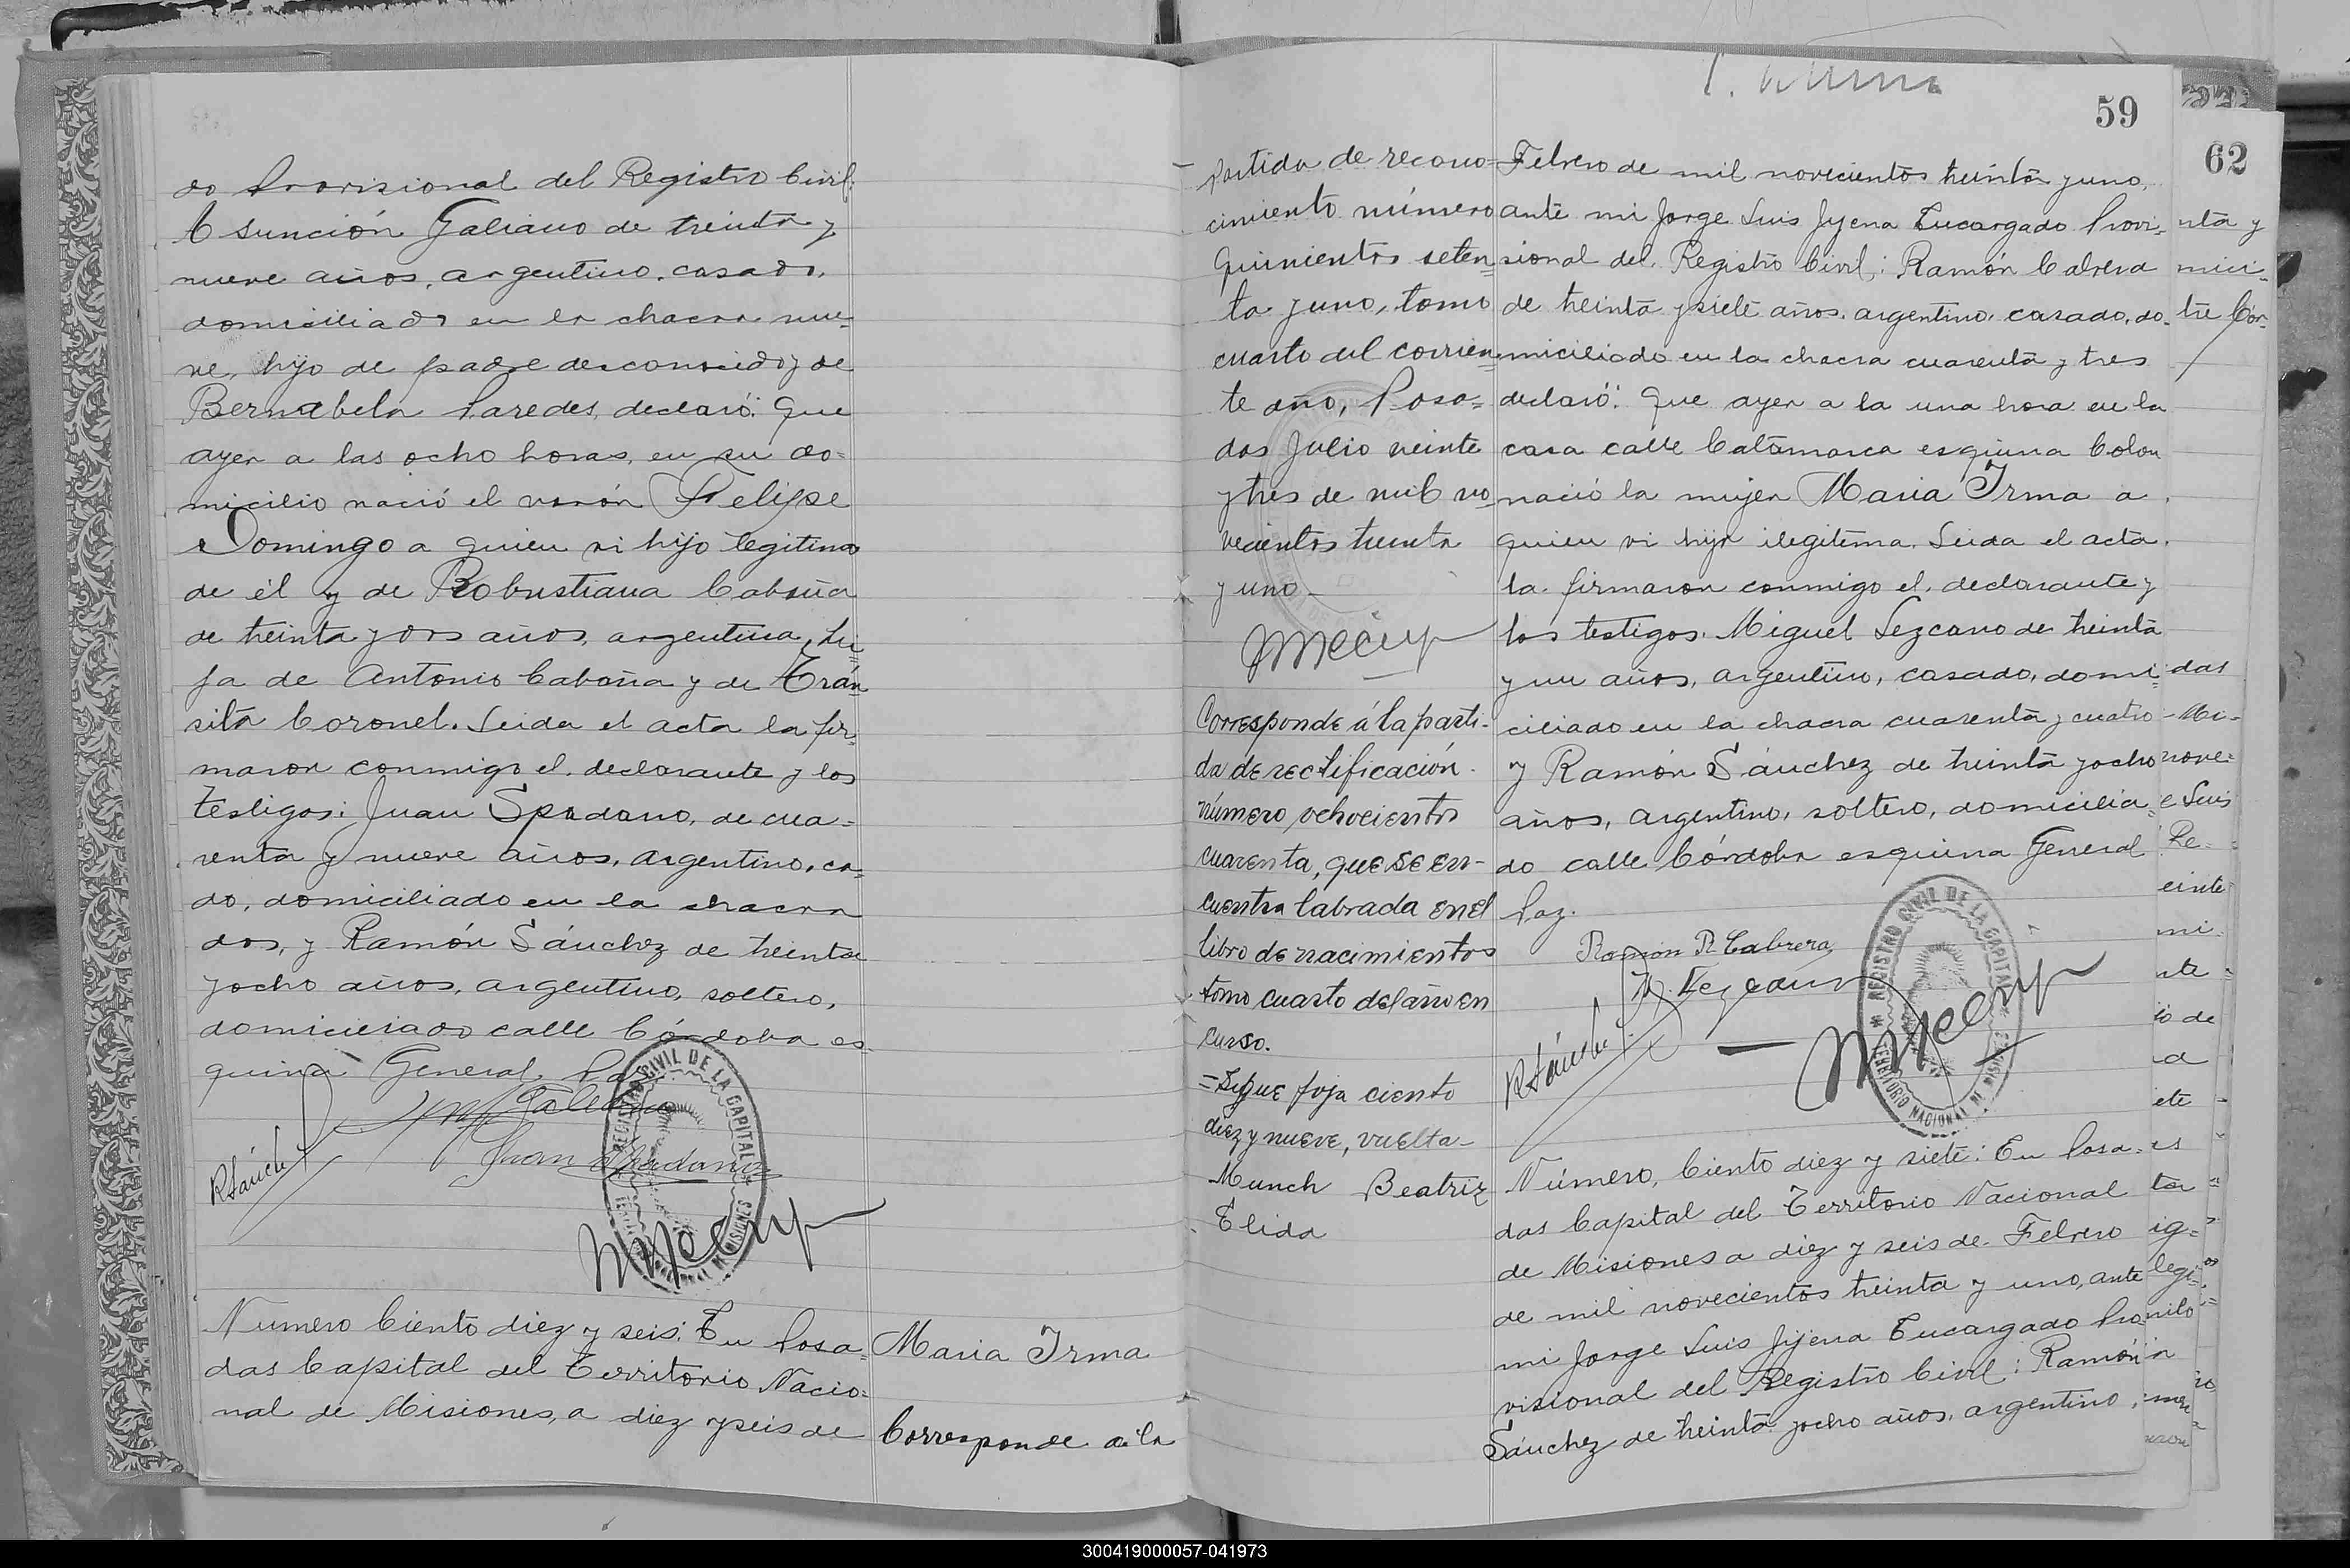 do Provisional del Registro Civil:
Asunción Galiano de treinta y
nueve años, argentino, casado,
domiciliado en la chacra nue=
ve, hijo de padre desconocido y de
Bernabela Paredes, declaró: Que
ayer a las ocho horas, en su do=
micilio nació el varón Felipe
Domingo a quien vi hijo legitimo
de él y de Robustiana Cabaña
de treinta y dos años, argentina, hi=
ja de Antonio Cabaña y de Trán=
sita Coronel. Leida el acta la fir=
maron conmigo el declarante y los
testigos: Juan Spadano, de cua=
renta y nueve años, argentino, ca=
do, domiciliado en la chacra
dos, y Ramón Sánchez de treinta
y ocho años, argentino, soltero,
domiciliado calle Córdoba es=
quina General Paz.
Galiano
RSánchez
Juan Spadano
REGISTRO CIVIL DE LA CAPITAL
NACIONAL MISIONES
Numero Ciento diez y seis: En Posa=
das Capital del Territorio Nacio=
nal de Misiones, a diez y seis de
Maria Irma
Corresponde a la
59
partida de recono=
cimiento número
quinientos seten=
ta y uno, tomo
cuarto del corrien=
te año, Posa=
das Julio veinte
y tres de mil no=
vecientos treinta
y uno
Corresponde á la parti-
da de rectificación
número ochocientos
cuarenta, que se en-
cuentra labrada en el
libro de nacimientos
tomo cuarto del año en
curso.
=Sigue foja ciento
diez y nueve, vuelta-
Munch Beatriz
Elida
Febrero de mil novecientos treinta y uno,
ante mi Jorge Luis Jijena Encargado Provi=
sional del Registro Civil: Ramón Cabrera
de treinta y siete años, argentino, casado, do=
miciliado en la chacra cuarenta y tres
declaró: Que ayer a la una hora en la
casa calle Catamarca esquina Colon
nació la mujer Maria Irma a
quien vi hija ilegitima. Leida el acta
la firmaron conmigo el declarante y
los testigos: Miguel Lezcano de treinta
y un años, argentino, casado, domi=
ciliado en la chacra cuarenta y cuatro
y Ramón Sánchez de treinta y ocho
años, argentino, soltero, domicilia=
do calle Córdoba esquina General
Paz.
Ramón R. Cabrera
M. Lezcano
RSánchez
REGISTRO CIVIL DE LA CAPITAL
TERRITORIO NACIONAL DE MISIONES
Número, Ciento diez y siete: En Posa=
das Capital del Territorio Nacional
de Misiones a diez y seis de Febrero
de mil novecientos treinta y uno, ante
mi Jorge Luis Jijena Encargado Pro=
visional del Registro Civil: Ramón
Sánchez de treinta y ocho años, argentino,
62
nta y
mici=
tre Cór=
das
Mi=
nove=
e Luis
Re=
einte
mi
nte
ió de
da
ete
es
ta
ig=
legi=
300419000057-041973